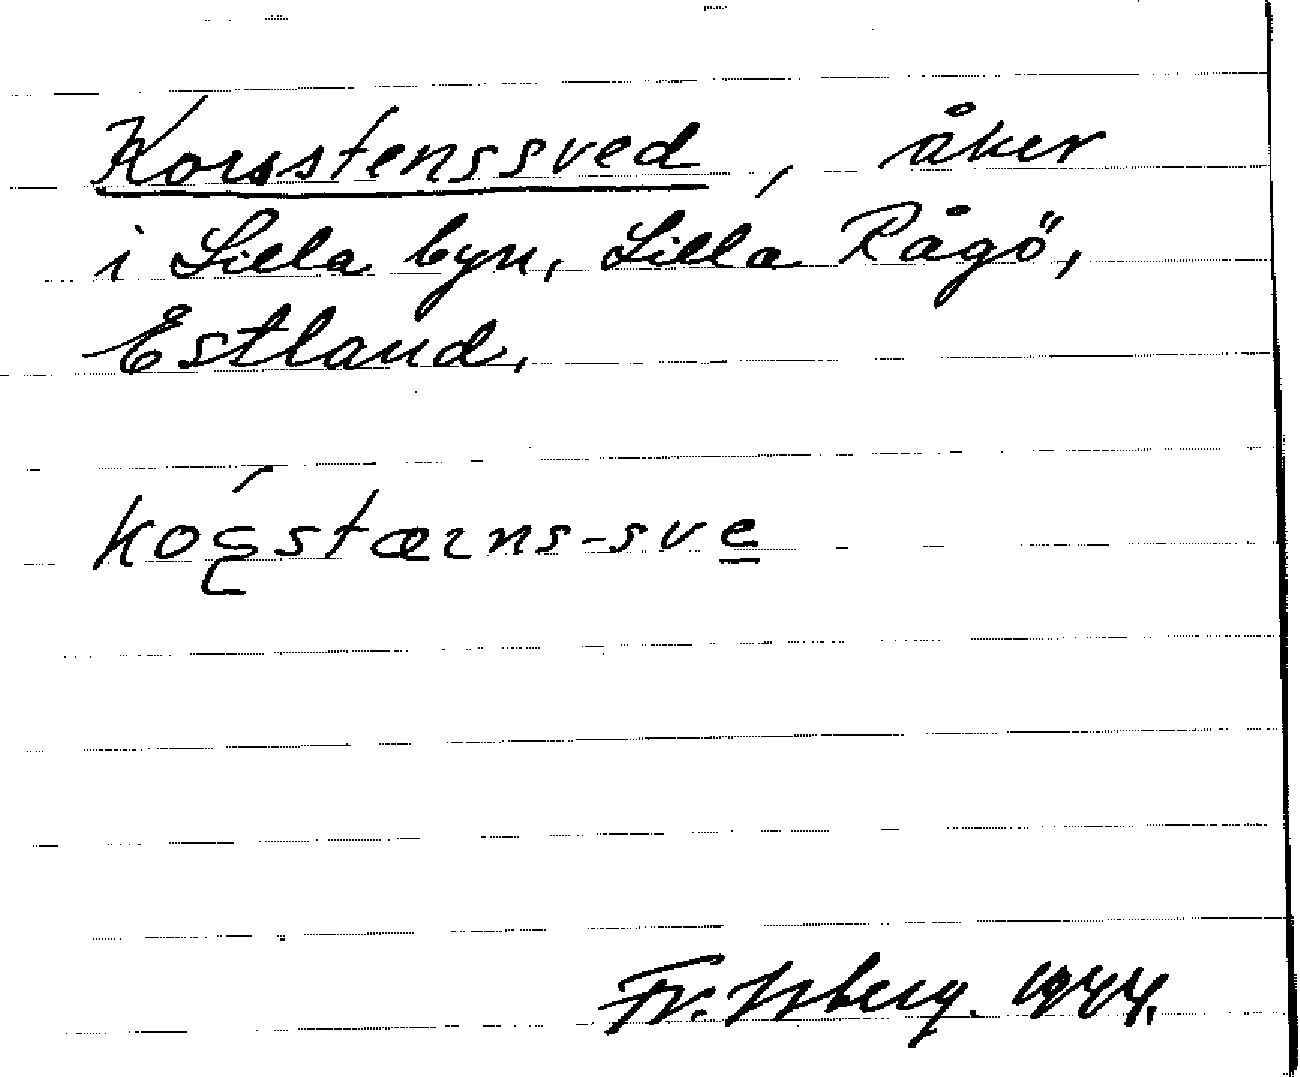 Korsstenssved, åker
i Lilla byn, Lilla Rågö,
Estland.
Fr. Isberg. 1944.